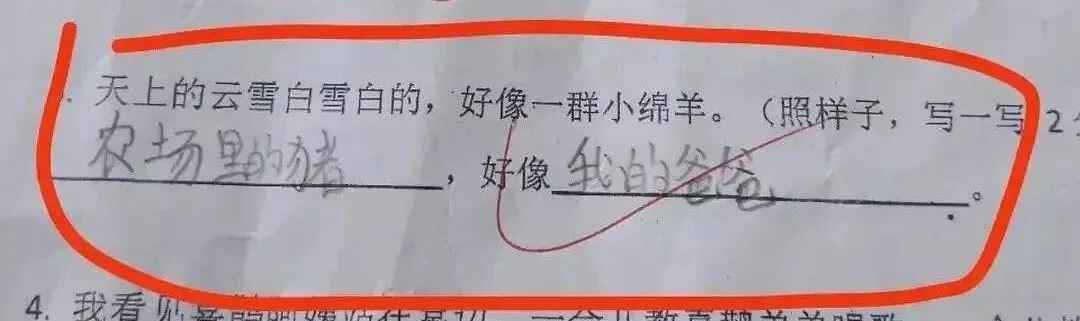 . 天上的云雪白雪白的，好像一群小绵羊。（照样子，写一写 2
农场里的猪，好像我的爸爸。
4. 我看见喜鹊